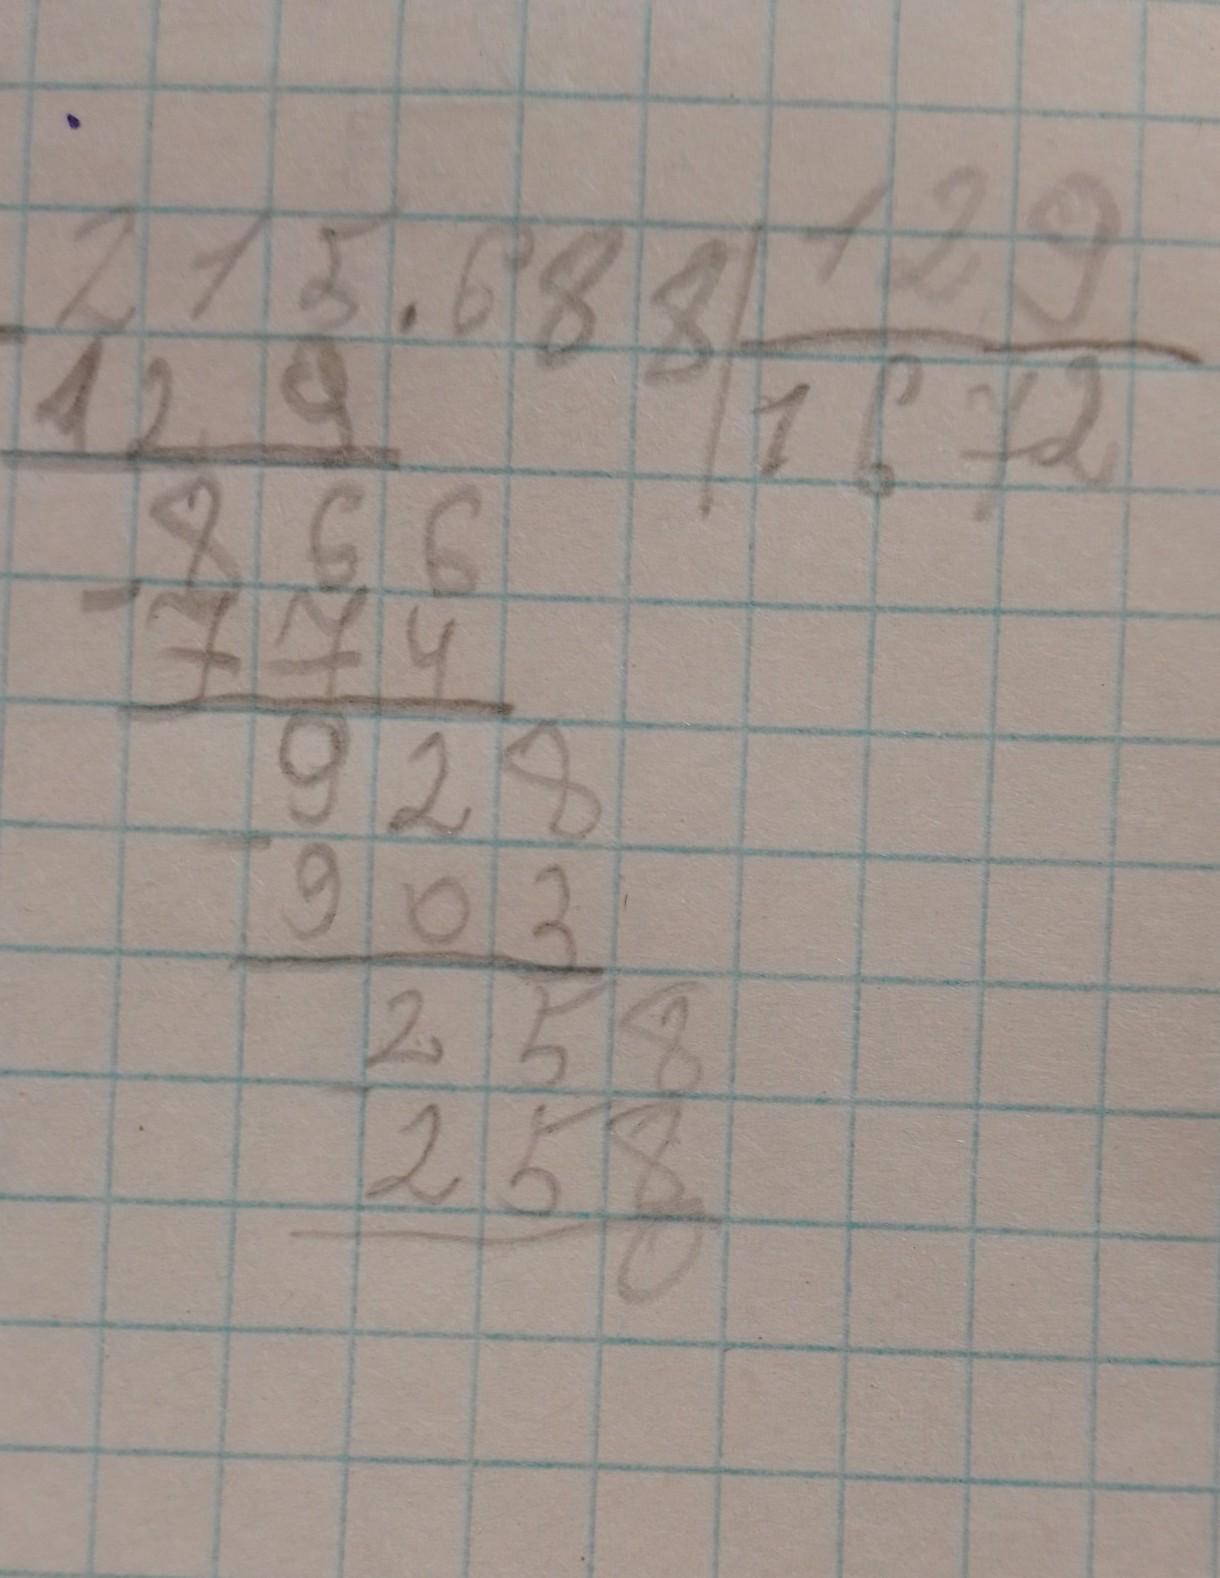 215.688 129
- 129 1672
866
- 774
928
- 903
258
- 258
0